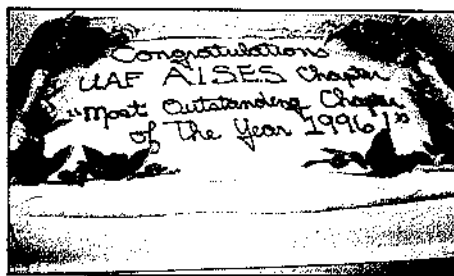 Congratulations
UAF AISES Chapter
"Most Outstanding Chapter
of The Year 1996!"